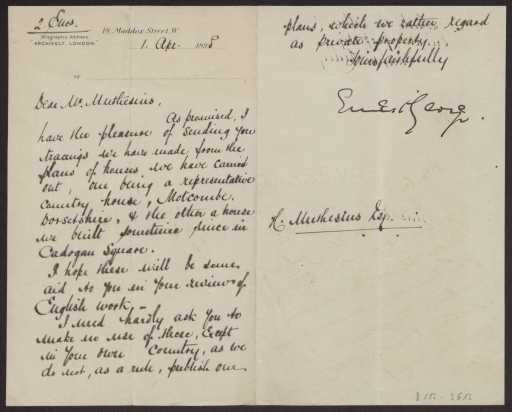 2 Encs.
18 Maddox Street. W.
Telegraphic Address
ARCHITECT, LONDON.
1. Apr. 1898
Dear Mr. Muthesius,
As promised, I
have the pleasure of sending you
tracings we have made from the
plans of houses, we have carried
out, one being a representative
country house, Motcombe.
Dorsetshire, & the other a house
we built sometime since in
Cadogan Square.
I hope these will be some
aid to you in your review of
English work. –
I need hardly ask you to
make no use of these, except
in your own Country, as we
do not, as a rule, publish our
plans, which we rather regard
as private property.
Yours faithfully
Ernest George.
H. Muthesius Esq.